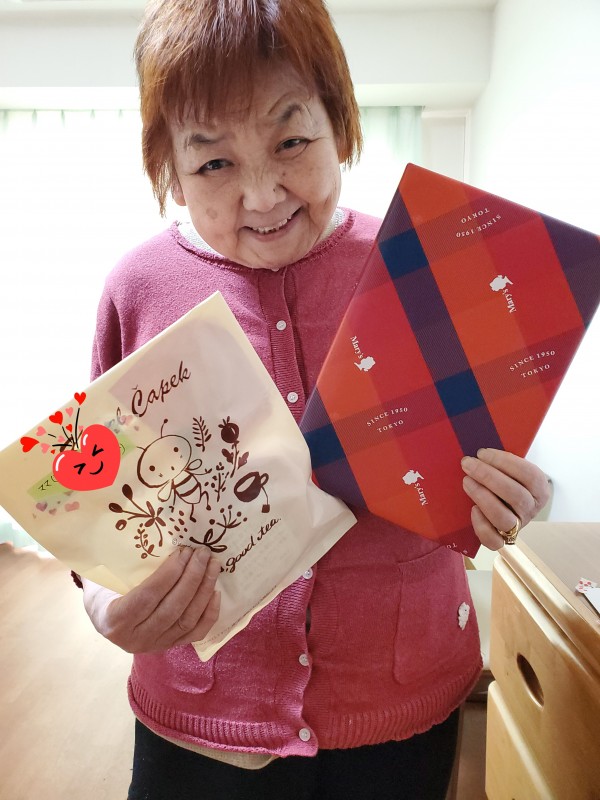 Čapek
ママ
good tea.
SINCE 1950
TOKYO
Mary's
Mary's
SINCE 1950
TOKYO
SINCE 1950
TOKYO
Mary's